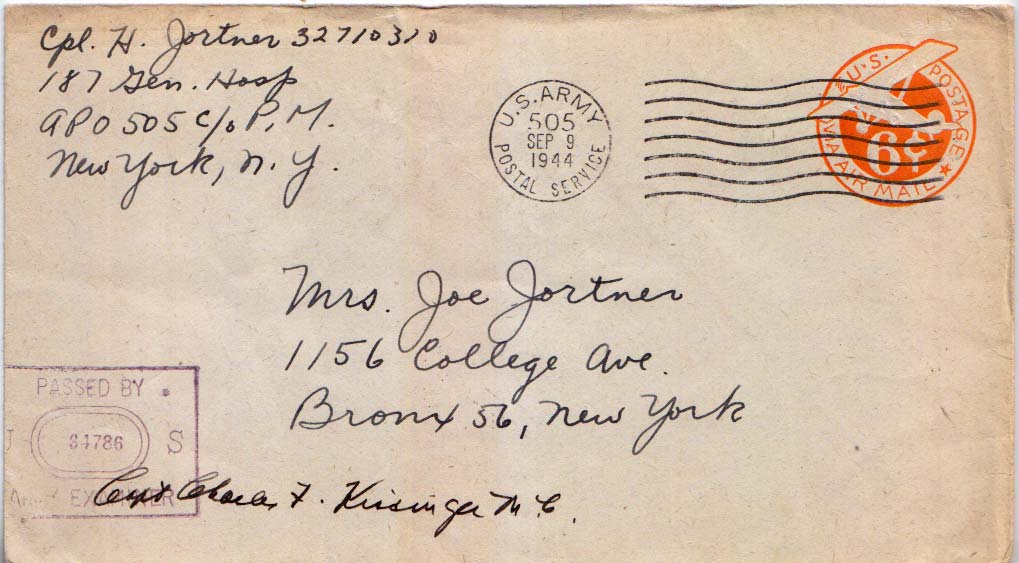 Cpl. H. Jortner 32710310
187 Gen. Hosp
APO 505 c/o P.M.
New York, N.Y.
U.S. ARMY
505
SEP 9
1944
POSTAL SERVICE
U.S. POSTAGE
6¢
VIA AIR MAIL
Mrs. Joe Jortner
1156 College Ave.
Bronx 56, New York
PASSED BY
U 34786 S
ARMY EXAMINER
Capt Charles F. Kissinger M.C.